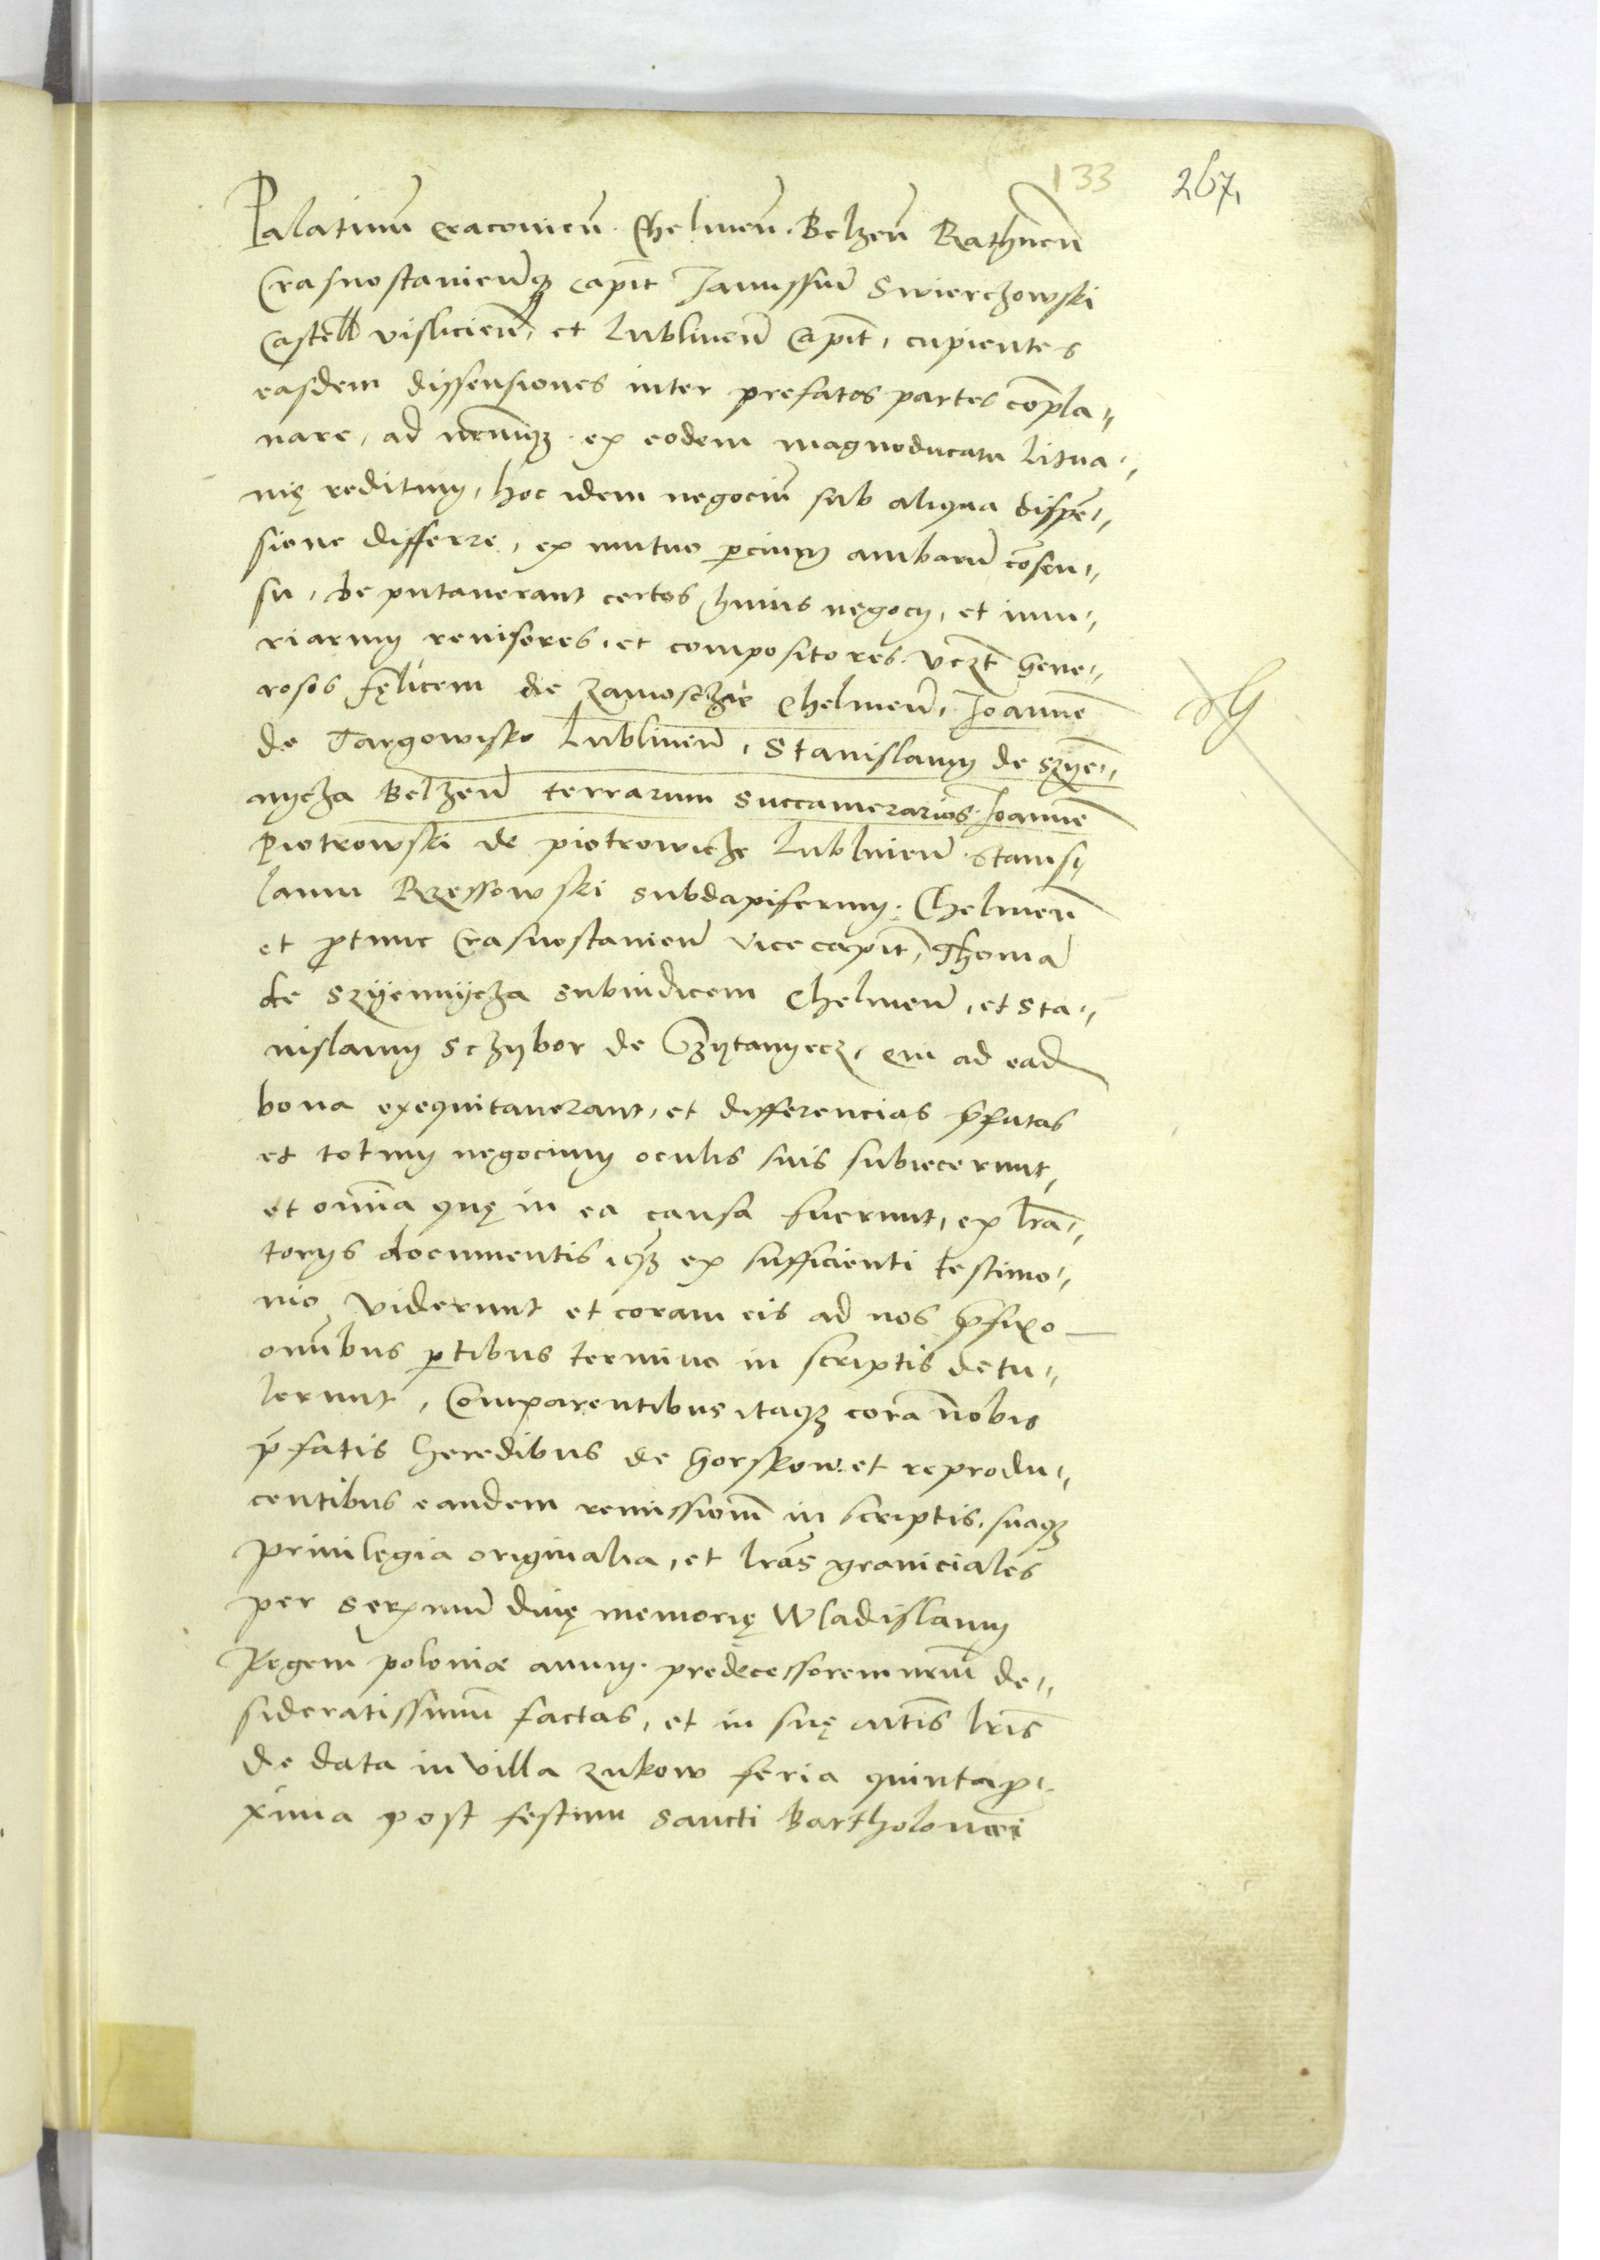 133 267
Palatinū Cracovieñ. Chelmeñ. Belzeñ Rathneñ
Crasnostavieñqz capit̄ Janussiū Swierczowski
Castell̄ visliciēn, et Lublineñ Capit̄, cupientes
easdem dissensiones inter prefatas partes cōpla⸗
nare, ad nr̄umqz ex eodem magnoducatu Litua⸗
nię reditum, hoc idem negociū sub aliqua dispē⸗
sione differre, ex mutuo ꝑcium ambarū cōsen⸗
su, deputaverant certos huius negocij, et iniu⸗
riarum revisores, et compositores. vczt̄ gene⸗
rosos fęlicem de zamosczie Chelmeñ, Joannē
de Targowisko Lublineñ, Stanislaum de Szyē⸗
nycza Belzeñ terrarum succamerarios. Joannē
Piotrowski de piotrowicze Lublineñ. Stanis⸗
laum Rzessowski subdapiferum. Chelmeñ
et ꝓtunc Crasnostavieñ vicecapit̄, Thomā
de Szyennycza subiudicem Chelmeñ, et Sta⸗
nislaum Sczybor de Czytanyecz, qui ad ead
bona exequitaverant, et differencias p̄fatas
et totum negocium oculis suis subiecerunt,
et om̄ia quę in ea causa fuerunt, ex lrā⸗
torijs documentis, qz ex sufficienti testimo⸗
nio viderunt et coram eis ad nos p̄fixo
om̄ibus ꝑtibus termino in scriptis detu⸗
lerunt, Comparentibus itaqz corā nobis
p̄fatis heredibus de horskow. et reprodu⸗
centibus eandem remissionē in scriptis, suaqz
privilegia originalia, et lr̄as graniciales
per Serx̄mū divę memorię Wladislaum
Regem poloniæ avum. predecessorem nr̄um de⸗
sideratissimū factas, et in suę lr̄is
de data in villa zukow feria quinta ꝓ⸗
xima post festum Sancti Bartholomæi